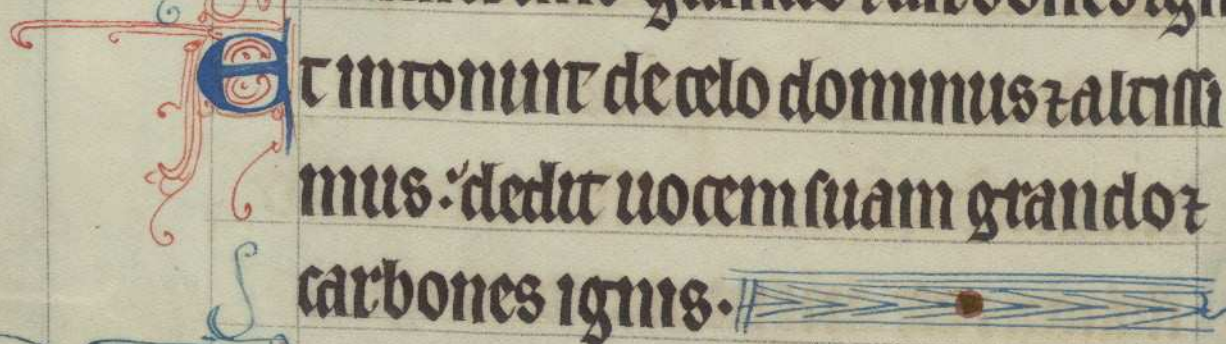 Et intonuit de celo dominus ⁊ altissi
mus : dedit uocem suam grando ⁊
carbones ignis .